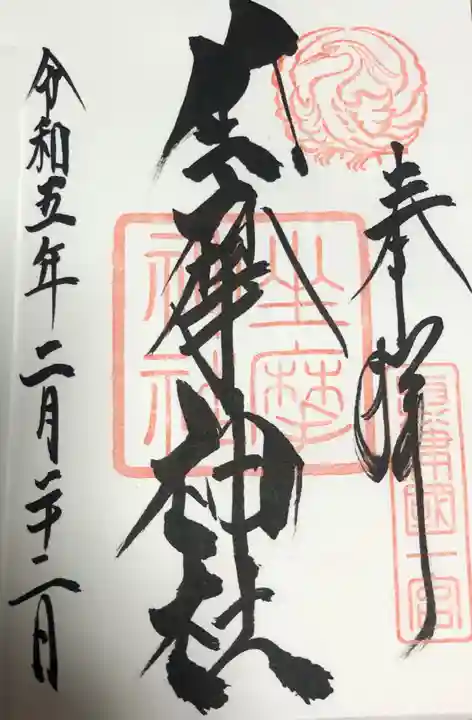 奉拝
摂津國一宮
坐摩神社
坐摩神社
令和五年二月二十二日